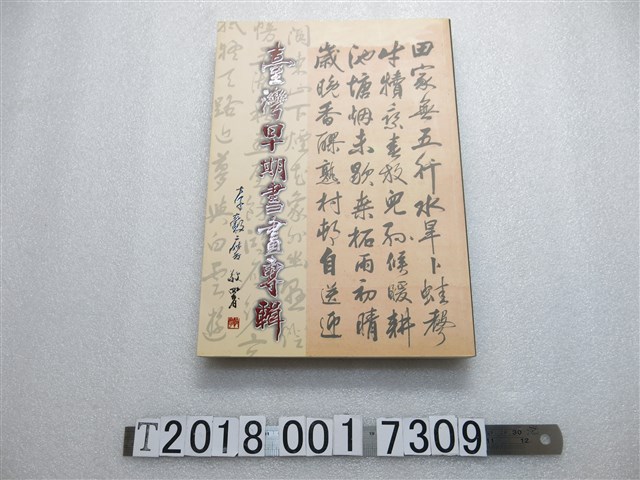 田家無五行水旱卜蛙聲
牛犢乘春放兒孫候暖耕
池塘烟未歇桑柘雨初晴
歲晚香醪熟村村自送迎
臺灣早期書畫專輯
李轂摩敬署
天路近夢與白雲遊
T2018 001 7309